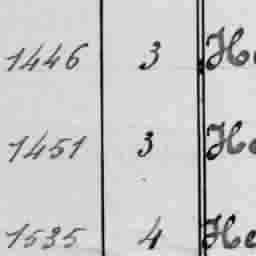 1446 3 He
1451 3 He
1535 4 He